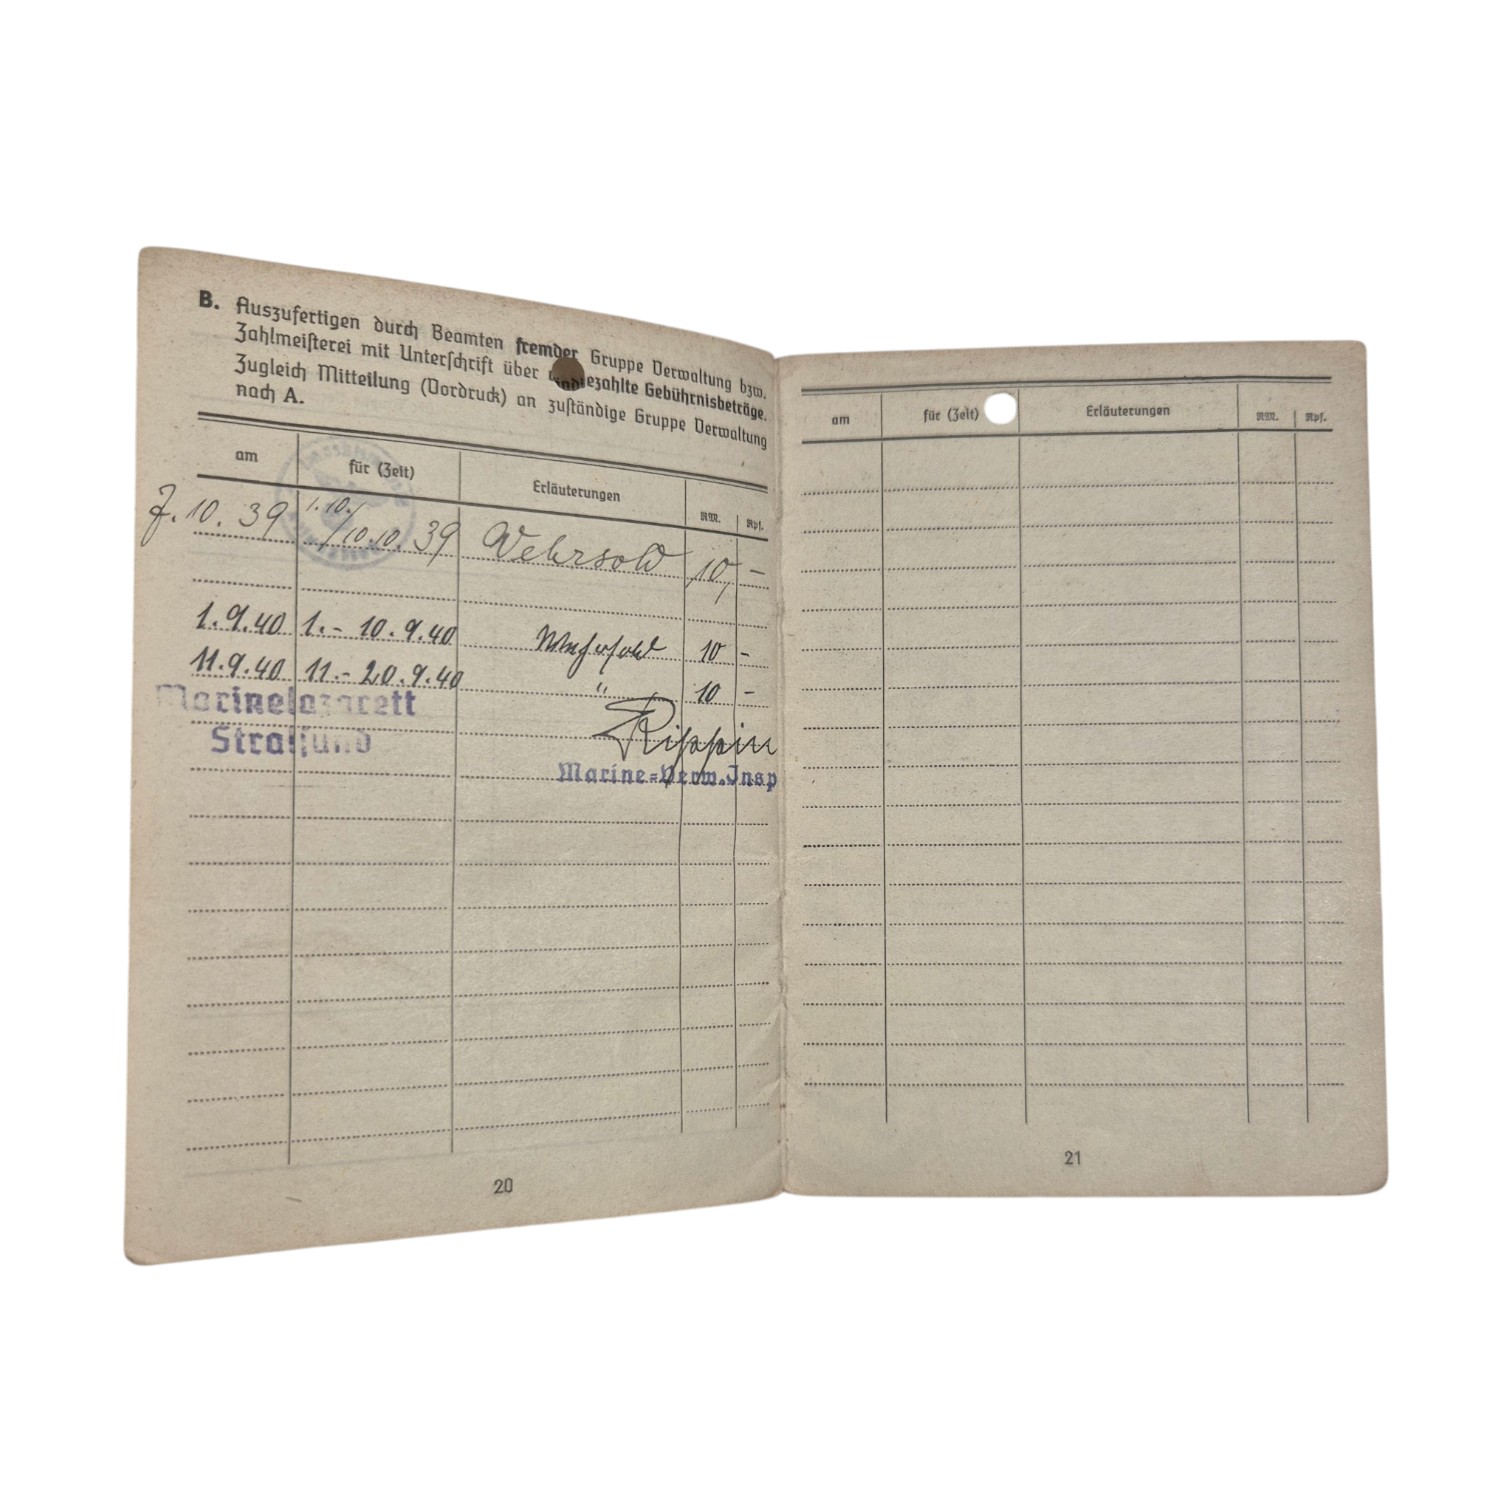 B. Auszufertigen durch Beamten fremder Gruppe Verwaltung bzw.
Zahlmeisterei mit Unterschrift über ezahlte Gebührnisbeträge.
Zugleich Mitteilung (Vordruck) an zuständige Gruppe Verwaltung
nach A.
am für (Zeit) Erläuterungen RM. Rpf.
7.10.39 1.10./10.10.39 Wehrsold 10,-
1.9.40 1.-10.9.40 Wehrsold 10 -
11.9.40 11.-20.9.40 " 10 -
Marinelazarett
Stralsund
Rippin
Marine=Verw.Insp
20
am für (Zeit) Erläuterungen RM. Rpf.
21